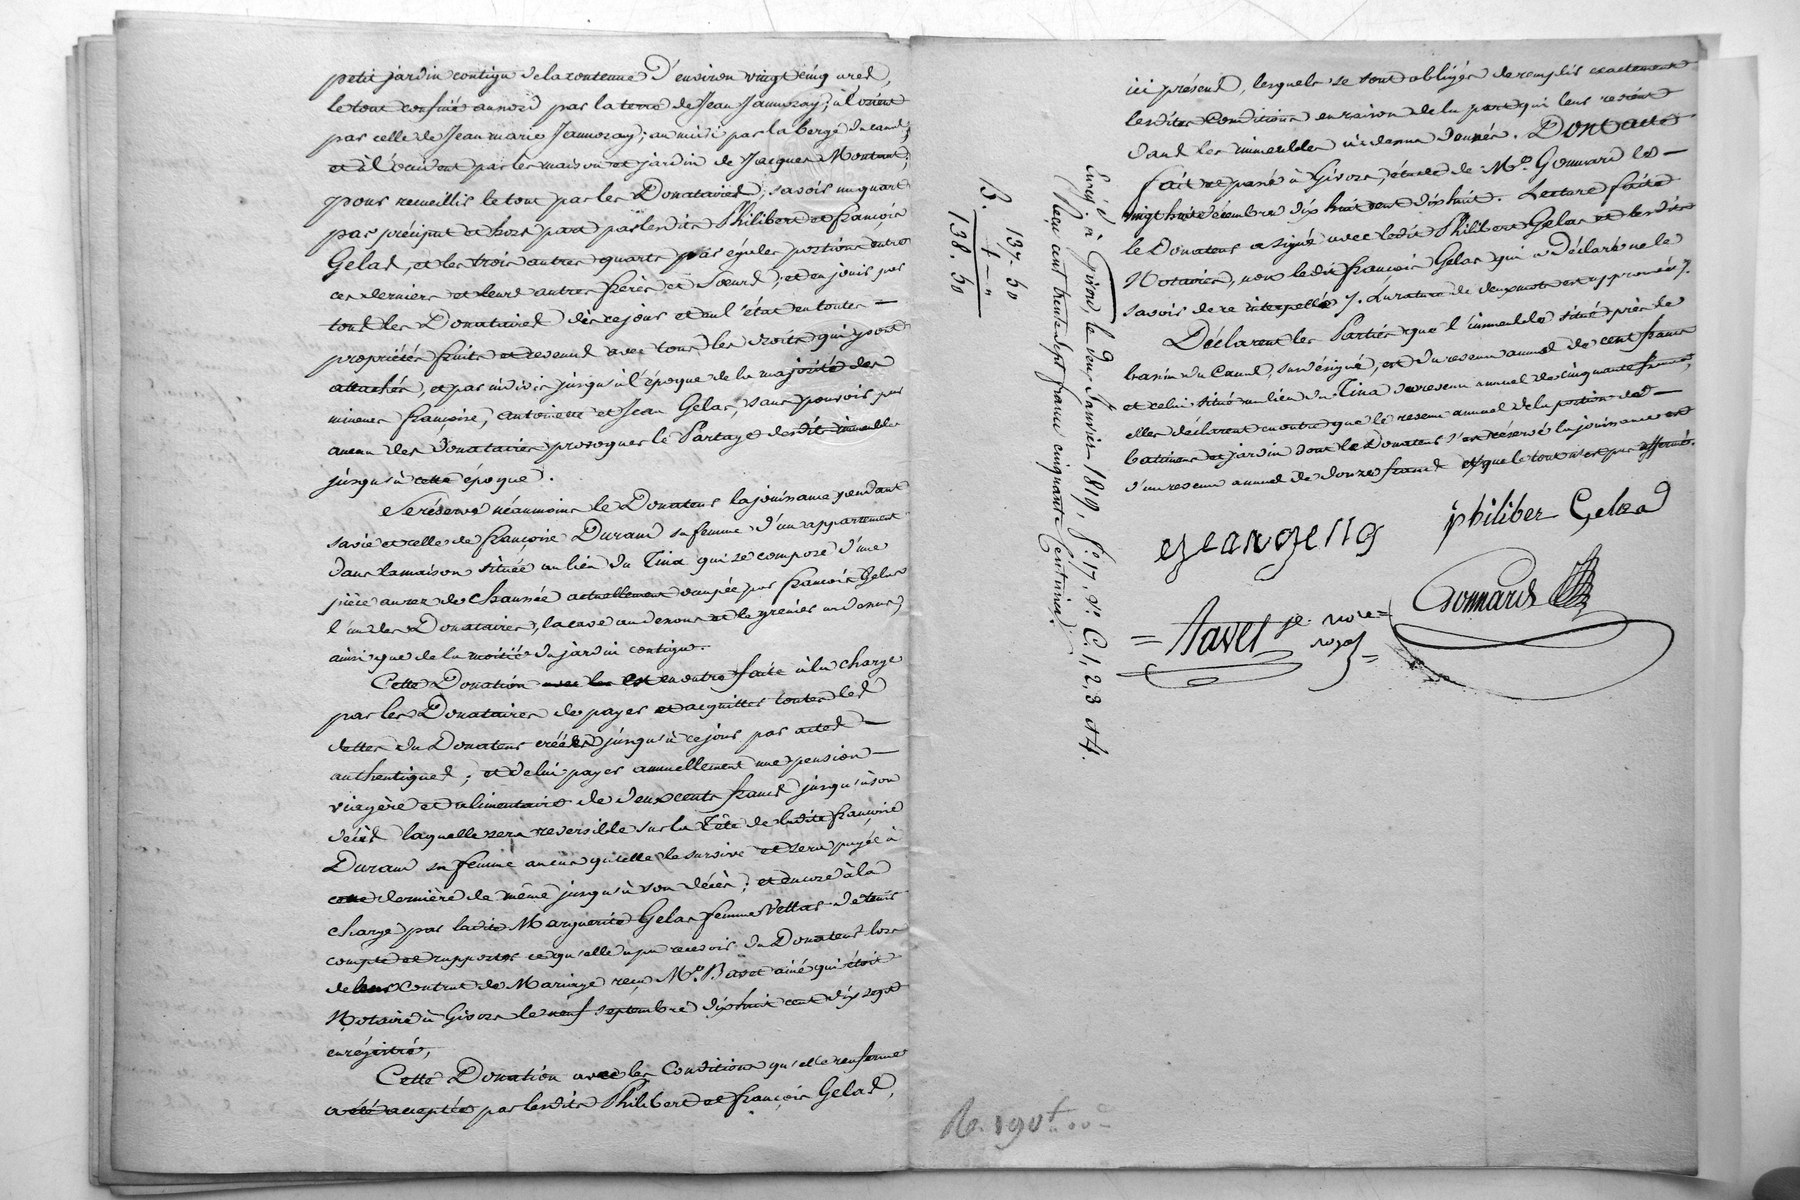 petit jardin contigu de la contenue d'environ vingt cinq ares,
le tout confiné au nord par la terre de Jean Jamoray; à l'orient
par celle de Jean marie Jamoray; au midi par la berge du canal;
et à l'occident par les maison et jardin de Jacques Montant;
pour recueillir le tout par les Donataires, savoir un quart
par préciput et hors part par lesdits Philibert et françois
Gelas, et les trois autres quarts par égales portions entre
ces derniers et leurs autres frères et Soeurs; et en jouir par
tous les Donataires dès ce jour et en l'état en toutes —
propriétés fruits et revenus avec tous les droits qui y sont
attachés, et par indivis jusqu'à l'époque de la majorité des
mineurs françoise, Antoinette et Jean Gelas, sans pouvoir par
aucun des donataires provoquer le Partage desdits immeubles
jusqu'à cette époque.
Se réserve néanmoins le Donateur la jouissance pendant
sa vie et celle de françoise Durand sa femme d'un appartement
dans la maison située au lieu du Tina qui se compose d'une
pièce au rez de chaussée actuellement occupée par françois Gelas
l'un des Donataires, la cave au dessous et le grenier au dessus,
ainsi que de la moitié du jardin contigu.
Cette Donation est en outre faite à la charge
par les Donataires de payer et acquitter toutes les
dettes du Donateur créées jusqu'à ce jour par actes —
authentiques; et de lui payer annuellement une pension —
viagère et alimentaire de deux cents francs jusqu'à son
décès laquelle sera reversible sur la Tête de ladite françoise
Durand sa femme au cas qu'elle le survive et sera payée à
cette dernière de même jusqu'à son décès; et encore à la
charge par ladite Marguerite Gelas femme Vettar de tenir
compte et rapporter ce qu'elle a pu recevoir du Donateur lors
de leur Contrat de Mariage reçu Me. Bavet ainé qui étoit
Notaire à Givors le neuf septembre dix huit cent dix sept
enrégistré,
Cette Donation avec les Conditions qu'elle renferme
a été acceptée par lesdits Philibert et françois Gelas,
ici présens, lesquels se sont obligés de remplir exactement
lesdites Conditions en raison de la part qui leur revient
dans les immeubles ci dessus donnés. Dont acte
fait et passé à Givors, étude de Me. Gonnard le —
vingt huit décembre dix huit cent dix huit. Lecture faite
le Donateur a signé avec ledit Philibert Gelas et lesdits
Notaires, non ledit françois Gelas qui a Déclaré ne le
savoir de ce interpellé ./. La rature de deux mots est approuvée ./.
Déclarent les Parties que l'immeuble situé près de
bassin du Canal, susdésigné, est du revenu annuel de cent francs
et celui situé au lieu du Tina du revenu annuel de cinquante francs,
elles déclarent en outre que le revenu annuel de la portion des —
batimens et jardin dont le Donateur s'est réservé la jouissance est
d'un revenu annuel de douze francs et que le tout n'est pas affermé.
Philiber Gelas
Gonnard
Enregé. à Givors, le deux Janvier 1819, fo. 17. vo. C. 1, 2, 3 et 4.
Reçu cent trente sept francs cinquante Centimes.
137. 50
138. 50